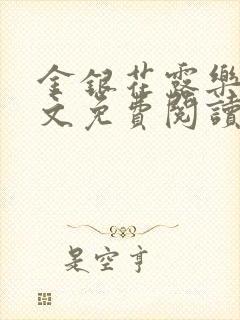 金银花露樂
文免費閱讀
是空亨